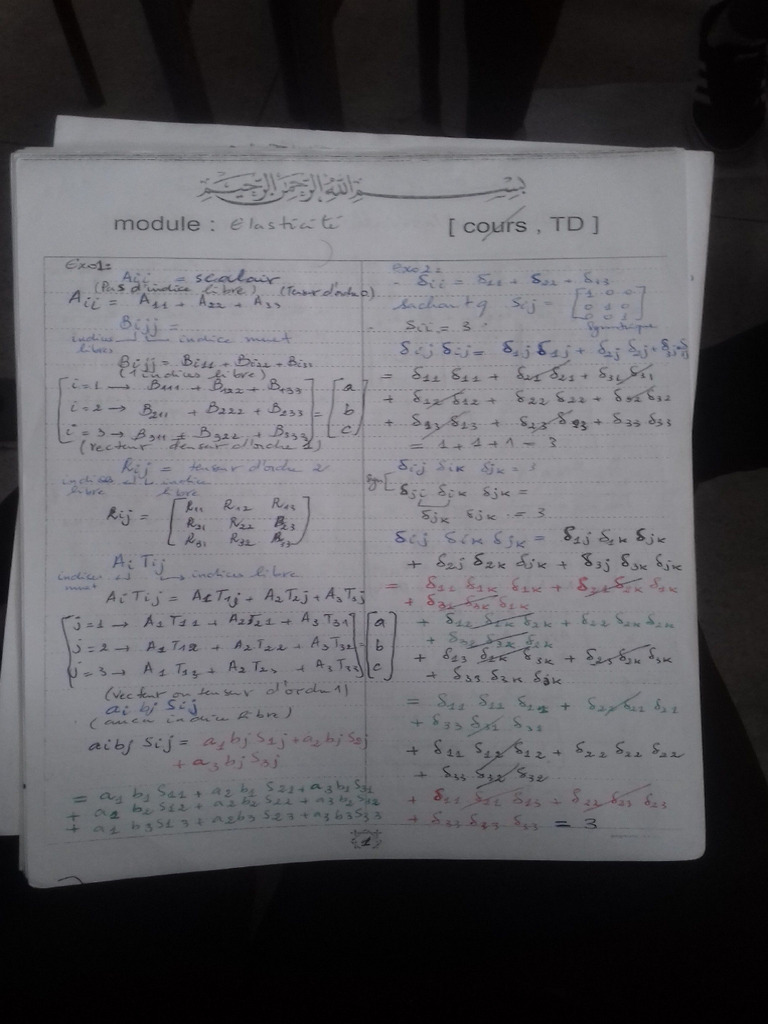 بسم الله الرحمن الرحيم
module : elasticité [ cours , TD ]
Exo1:
Aii = scalair
(Pas d'indice libre) (Tenseur d'ordre 0)
Aii = A11 + A22 + A33
Bijj =
indices libres indice muet
Bijj = Bi11 + Bi22 + Bi33
(1 indice libre)
i=1 → B111 + B122 + B133 = a
i=2 → B211 + B222 + B233 b
i=3 → B311 + B322 + B333 c
(vecteur tenseur d'ordre 1)
Rij = tenseur d'ordre 2
indices libre indice libre
Rij = R11 R12 R13
R21 R22 R23
R31 R32 R33
Ai Tij
indices muet → indices libre
Ai Tij = A1T1j + A2T2j + A3T3j
j=1 → A1T11 + A2T21 + A3T31 = a
j=2 → A1T12 + A2T22 + A3T32 b
j=3 → A1T13 + A2T23 + A3T33 c
(vecteur ou tenseur d'ordre 1)
ai bj Sij
(aucun indice libre)
aibj Sij = a1bjS1j + a2bjS2j
+ a3bjS3j
= a1 b1 S11 + a2 b1 S21 + a3 b1 S31
+ a1 b2 S12 + a2 b2 S22 + a3 b2 S32
+ a1 b3 S13 + a2b3 S23 + a3b3 S33
exo2:
- δii = δ11 + δ22 + δ33
sachant q δij = 1 0 0
0 1 0
0 0 1
Symétrique
δii = 3
δij δij = δ1j δ1j + δ2j δ2j + δ3j δ3j
= δ11 δ11 + δ21 δ21 + δ31 δ31
+ δ12 δ12 + δ22 δ22 + δ32 δ32
+ δ13 δ13 + δ23 δ23 + δ33 δ33
= 1 + 1 + 1 = 3
δij δik δjk = 3
δji δik δjk =
δjk δjk = 3
δij δik δjk = δ1j δ1k δjk
+ δ2j δ2k δjk + δ3j δ3k δjk
= δ11 δ1k δ1k + δ21 δ2k δ1k
+ δ31 δ3k δ1k
+ δ12 δ1k δ2k + δ22 δ2k δ2k
+ δ32 δ3k δ2k
+ δ13 δ1k δ3k + δ23 δ2k δ3k
+ δ33 δ3k δjk
= δ11 δ11 δ11 + δ22 δ21 δ21
+ δ33 δ31 δ31
+ δ11 δ12 δ12 + δ22 δ22 δ22
+ δ33 δ32 δ32
+ δ11 δ13 δ13 + δ22 δ23 δ23
+ δ33 δ33 δ33 = 3
1